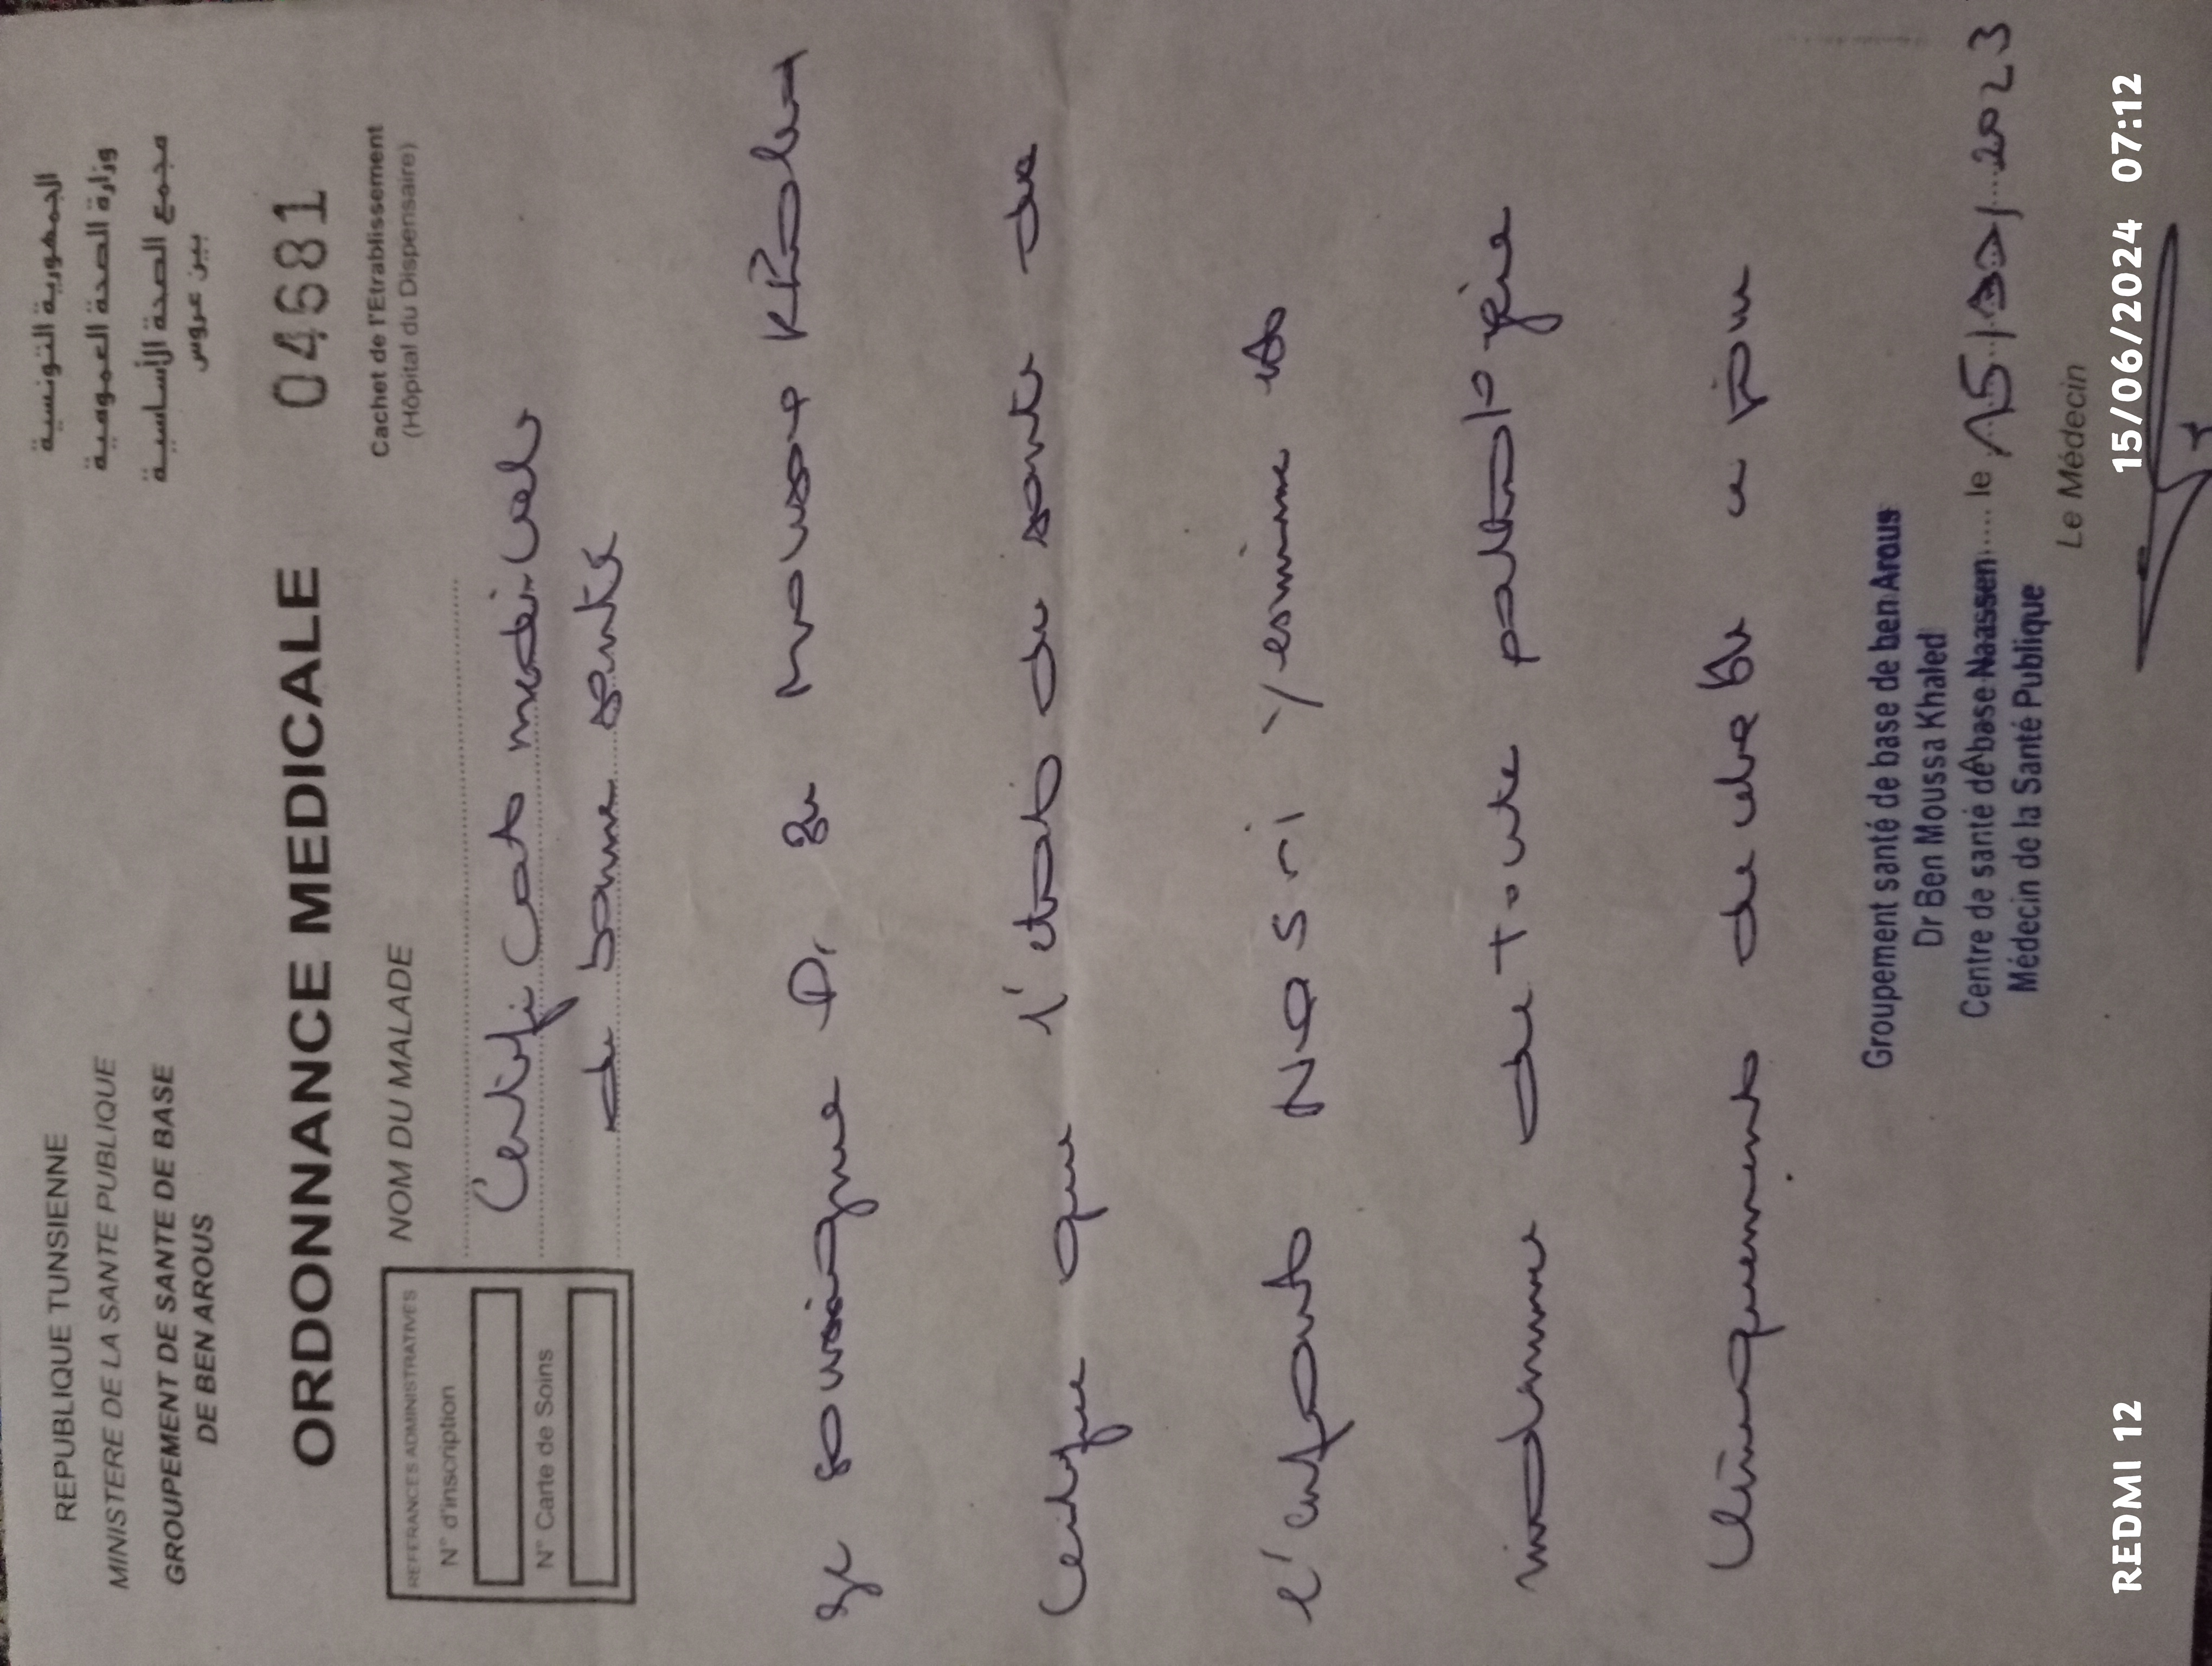 REPUBLIQUE TUNSIENNE
MINISTERE DE LA SANTE PUBLIQUE
GROUPEMENT DE SANTE DE BASE
DE BEN AROUS
الجمهورية التونسية
وزارة الصحة العمومية
مجمع الصحة الأساسية
ببن عروس
ORDONNANCE MEDICALE
04681
REFERANCES ADMINISTRATIVES
N° d'inscription
N° Carte de Soins
NOM DU MALADE
Cachet de l'Etrablissement
(Hôpital du Dispensaire)
Certificat médical
de bonne santé
Je soussigné Dr Ben Moussa Khaled
Certifie que l'état de santé de
l'enfant Nasri Yesmine est
indemne de toute pathologie
cliniquement décelable ce jour
Groupement santé de base de ben Arous
Dr Ben Moussa Khaled
Centre de santé de base Naassen
Médecin de la Santé Publique
le 15 / 2023
Le Médecin
REDMI 12
15/06/2024 07:12